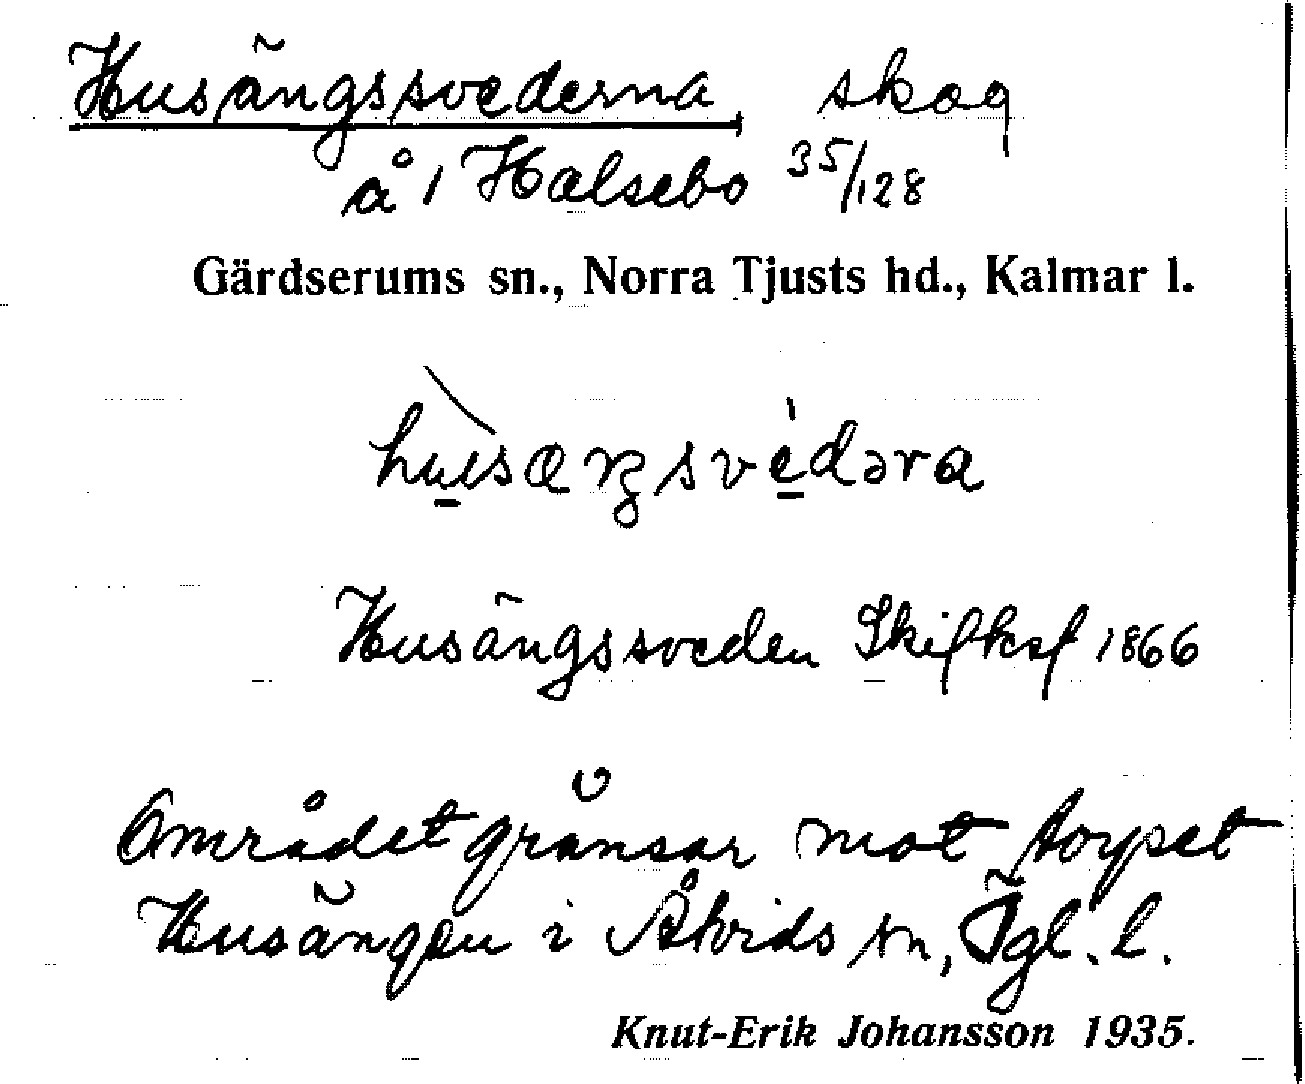 Husängssvederna skog
å 1 Halsebo 35/128
Gärdserums sn., Norra Tjusts hd., Kalmar l.
Husängssveden Skifksf 1866
Området gränsar mot torpet
Husängen i Åtvids sn, Ögl. l.
Knut-Erik Johansson 1935.